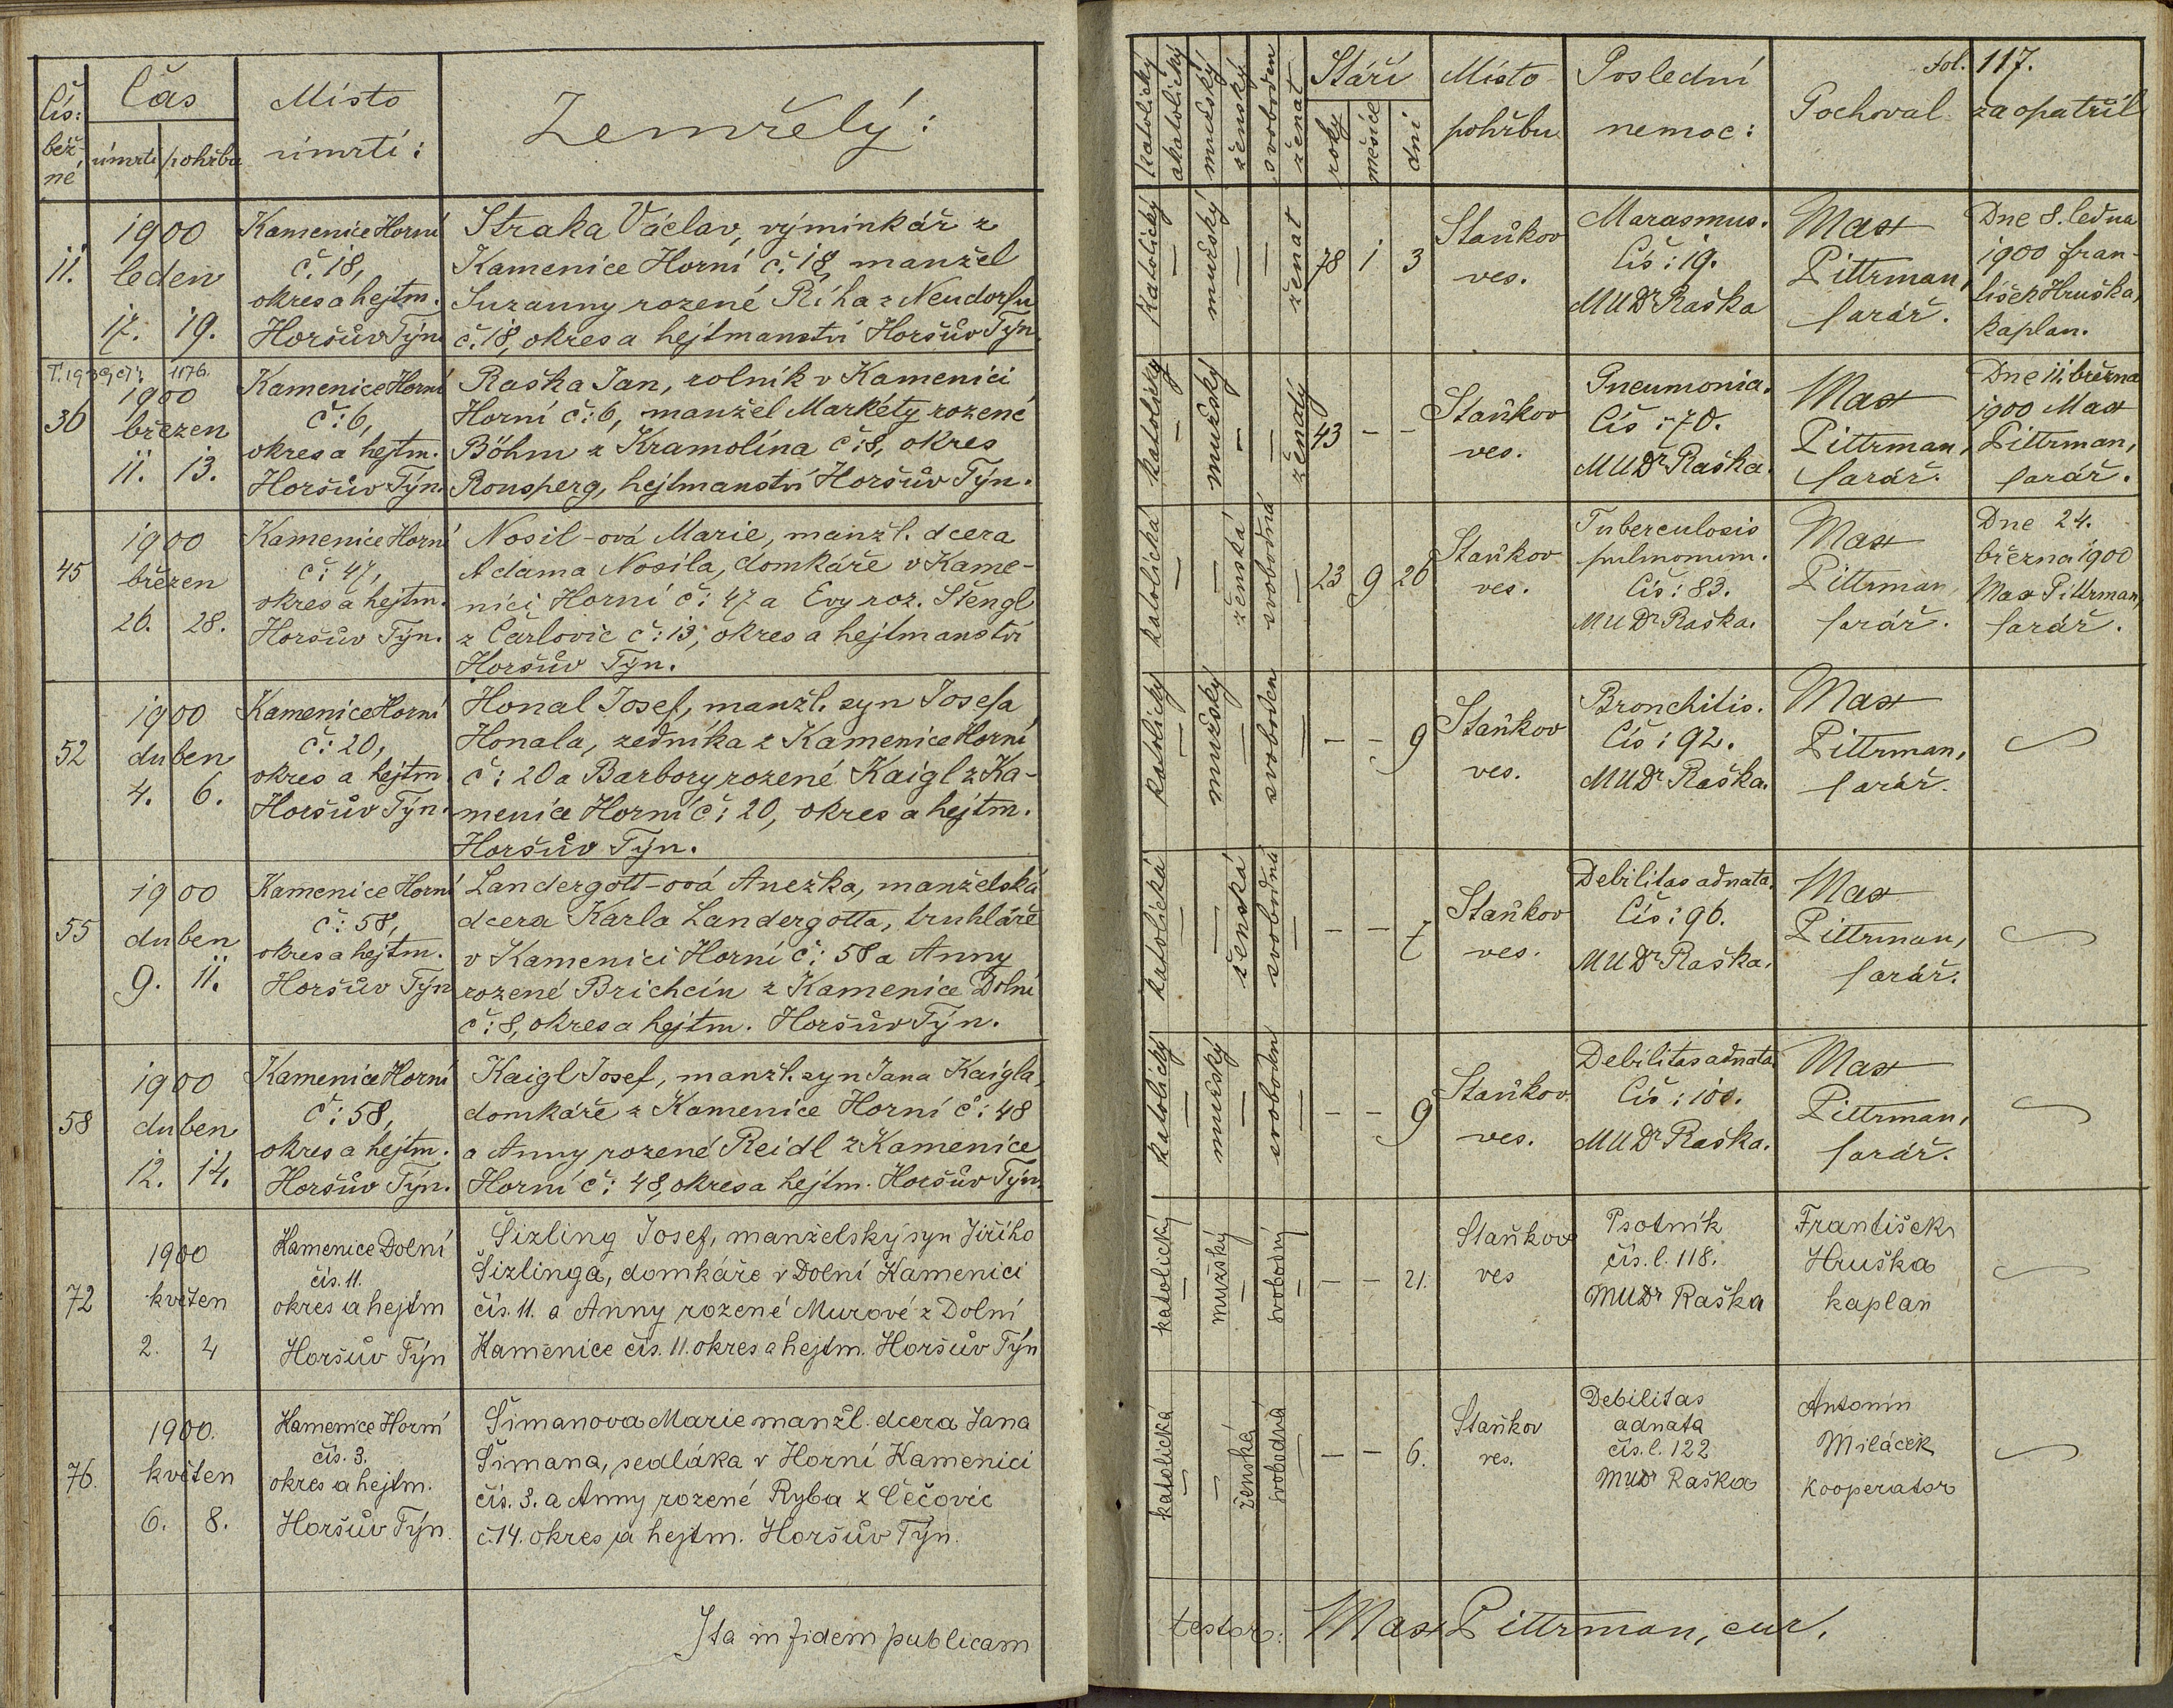 Čís: běžné
Čas
úmrtí pohřbu
Místo úmrtí:
Zemřelý:
katolický
akatolický
mužský
ženský
svoboden
ženat
Stáří
roky
měsíce
dní
Místo pohřbu
Poslední nemoc:
Pochoval
fol. 117.
zaopatřil
11.
1900
leden
17. 19.
Kamenice Horní
č. 18,
okres a hejtm.
Horšův Týn
Straka Václav, výminkář z
Kamenice Horní č. 18, manžel
Suzanny rozené Říha z Neudorfu
č. 18, okres a hejtmanství Horšův Týn.
katolický
—
mužský
—
—
ženat
78 1 3
Staňkov
ves.
Marasmus.
Čís: 19.
MUDr Raška
Max
Pittrman,
farář.
Dne 8. ledna
1900 Fran-
tišek Hruška,
kaplan.
1176.
36
1900
březen
11. 13.
Kamenice Horní
č: 6,
okres a hejtm.
Horšův Týn.
Raška Jan, rolník v Kamenici
Horní č: 6, manžel Markéty rozené
Böhm z Kramolína č: 8, okres
Ronsperg, hejtmanství Horšův Týn.
katolický
—
mužský
—
—
ženatý
43 – –
Staňkov
ves.
Pneumonia.
Čís: 70.
MUDr Raška.
Max
Pittrman,
farář.
Dne 11. března
1900 Max
Pittrman,
farář.
45
1900
březen
26. 28.
Kamenice Horní
č: 47,
okres a hejtm.
Horšův Týn.
Nosil-ová Marie, manžl. dcera
Adama Nosila, domkáře v Kame-
nici Horní č: 47 a Evy roz. Štengl
z Čarlovic č: 13, okres a hejtmanství
Horšův Týn.
katolická
—
—
ženská
svobodná
—
23 9 26
Staňkov
ves.
Tuberculosis
pulmonum.
Čís: 83.
MUDr Raška.
Max
Pittrman
farář.
Dne 24.
března 1900
Max Pittrman,
farář.
52
1900
duben
4. 6.
Kamenice Horní
č: 20,
okres a hejtm.
Horšův Týn.
Honal Josef, manžl. syn Josefa
Honala, zedníka z Kamenice Horní
č: 20 a Barbory rozené Kaigl z Ka-
menice Horní č: 20, okres a hejtm.
Horšův Týn.
katolický
—
mužský
—
svoboden
—
– – 9
Staňkov
ves.
Bronchitis.
Čís: 92.
MUDr Raška.
Max
Pittrman,
farář.
55
1900
duben
9. 11.
Kamenice Horní
č: 58,
okres a hejtm.
Horšův Týn
Landergott-ová Anežka, manželská
dcera Karla Landergotta, truhláře
v Kamenici Horní č: 58 a Anny
rozené Brichcín z Kamenice Dolní
č: 8, okres a hejtm. Horšův Týn.
katolická
—
—
ženská
svobodná
—
– – 7
Staňkov
ves.
Debilitas adnata.
Čís: 96.
MUDr Raška.
Max
Pittrman,
farář.
58
1900
duben
12. 14.
Kamenice Horní
č: 58,
okres a hejtm.
Horšův Týn.
Kaigl Josef, manžl. syn Jana Kaigla,
domkáře z Kamenice Horní č: 48
a Anny rozené Reidl z Kamenice
Horní č: 48, okres a hejtm. Horšův Týn.
katolický
—
mužský
—
svoboden
—
– – 9
Staňkov
ves.
Debilitas adnata
Čís: 100.
MUDr Raška.
Max
Pittrman,
farář.
72
1900
květen
2. 4
Kamenice Dolní
čís. 11.
okres a hejtm
Horšův Týn
Šizling Josef, manželský syn Jiřího
Šizlinga, domkáře v Dolní Kamenici
čís. 11. a Anny rozené Murové z Dolní
Kamenice čís. 11. okres a hejtm. Horšův Týn
katolický
—
mužský
—
svobodný
—
– – 21.
Staňkov
ves
Psotník
čís. l. 118.
MUDr Raška
František
Hruška
kaplan
76.
1900.
květen
6. 8.
Kamenice Horní
čís. 3.
okres a hejtm.
Horšův Týn.
Šimanova Marie manžl. dcera Jana
Šimana, sedláka v Horní Kamenici
čís. 3. a Anny rozené Ryba z Čečovic
č. 14. okres a hejtm. Horšův Týn.
katolická
—
—
ženská
svobodná
—
– – 6.
Staňkov
ves.
Debilitas
adnata
čís. l. 122
MUDr Raška
Antonín
Miláček
kooperator
Ita in fidem publicam
testor: Max Pittrman, cur.